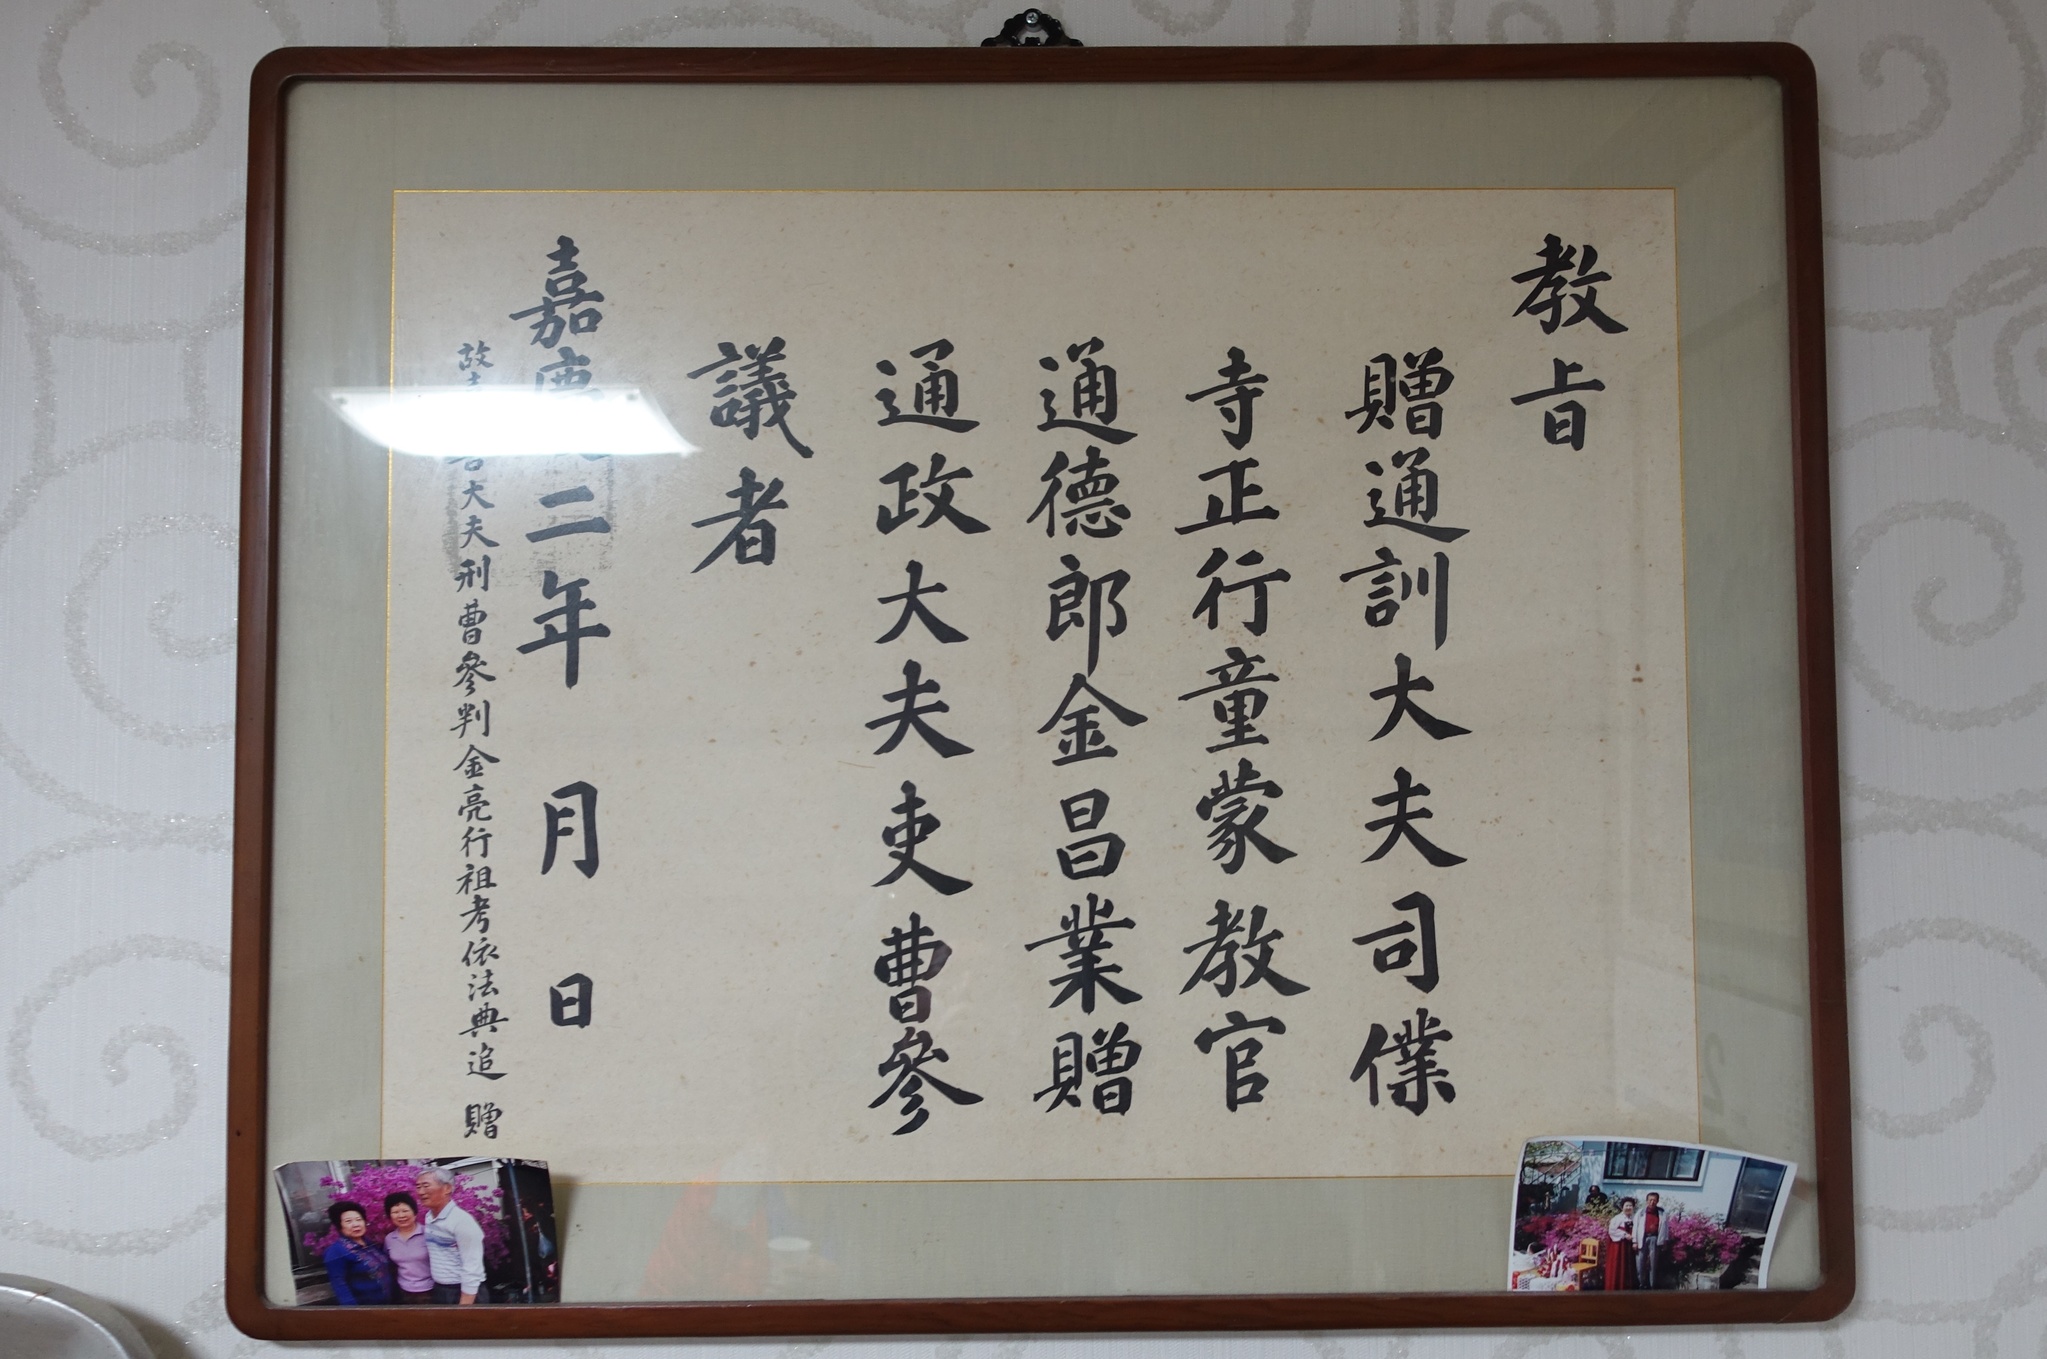 教旨
贈通訓大夫司僕
寺正行童蒙教官
通德郎金昌業贈
通政大夫吏曹參
議者
嘉慶二年 月 日
故 善大夫刑曹參判金亮行祖考依法典追 贈